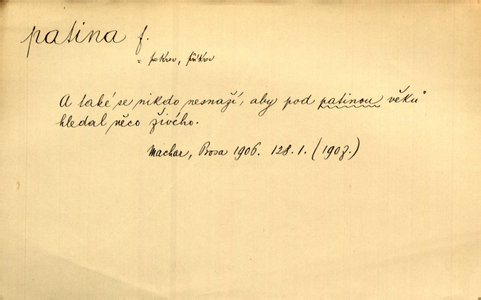 patina f.
= pokrov, příkrov
A také se nikdo nesnaží, aby pod patinou věků
hledal něco živého.
Machar, Rosa 1906. 128. 1. (1907.)